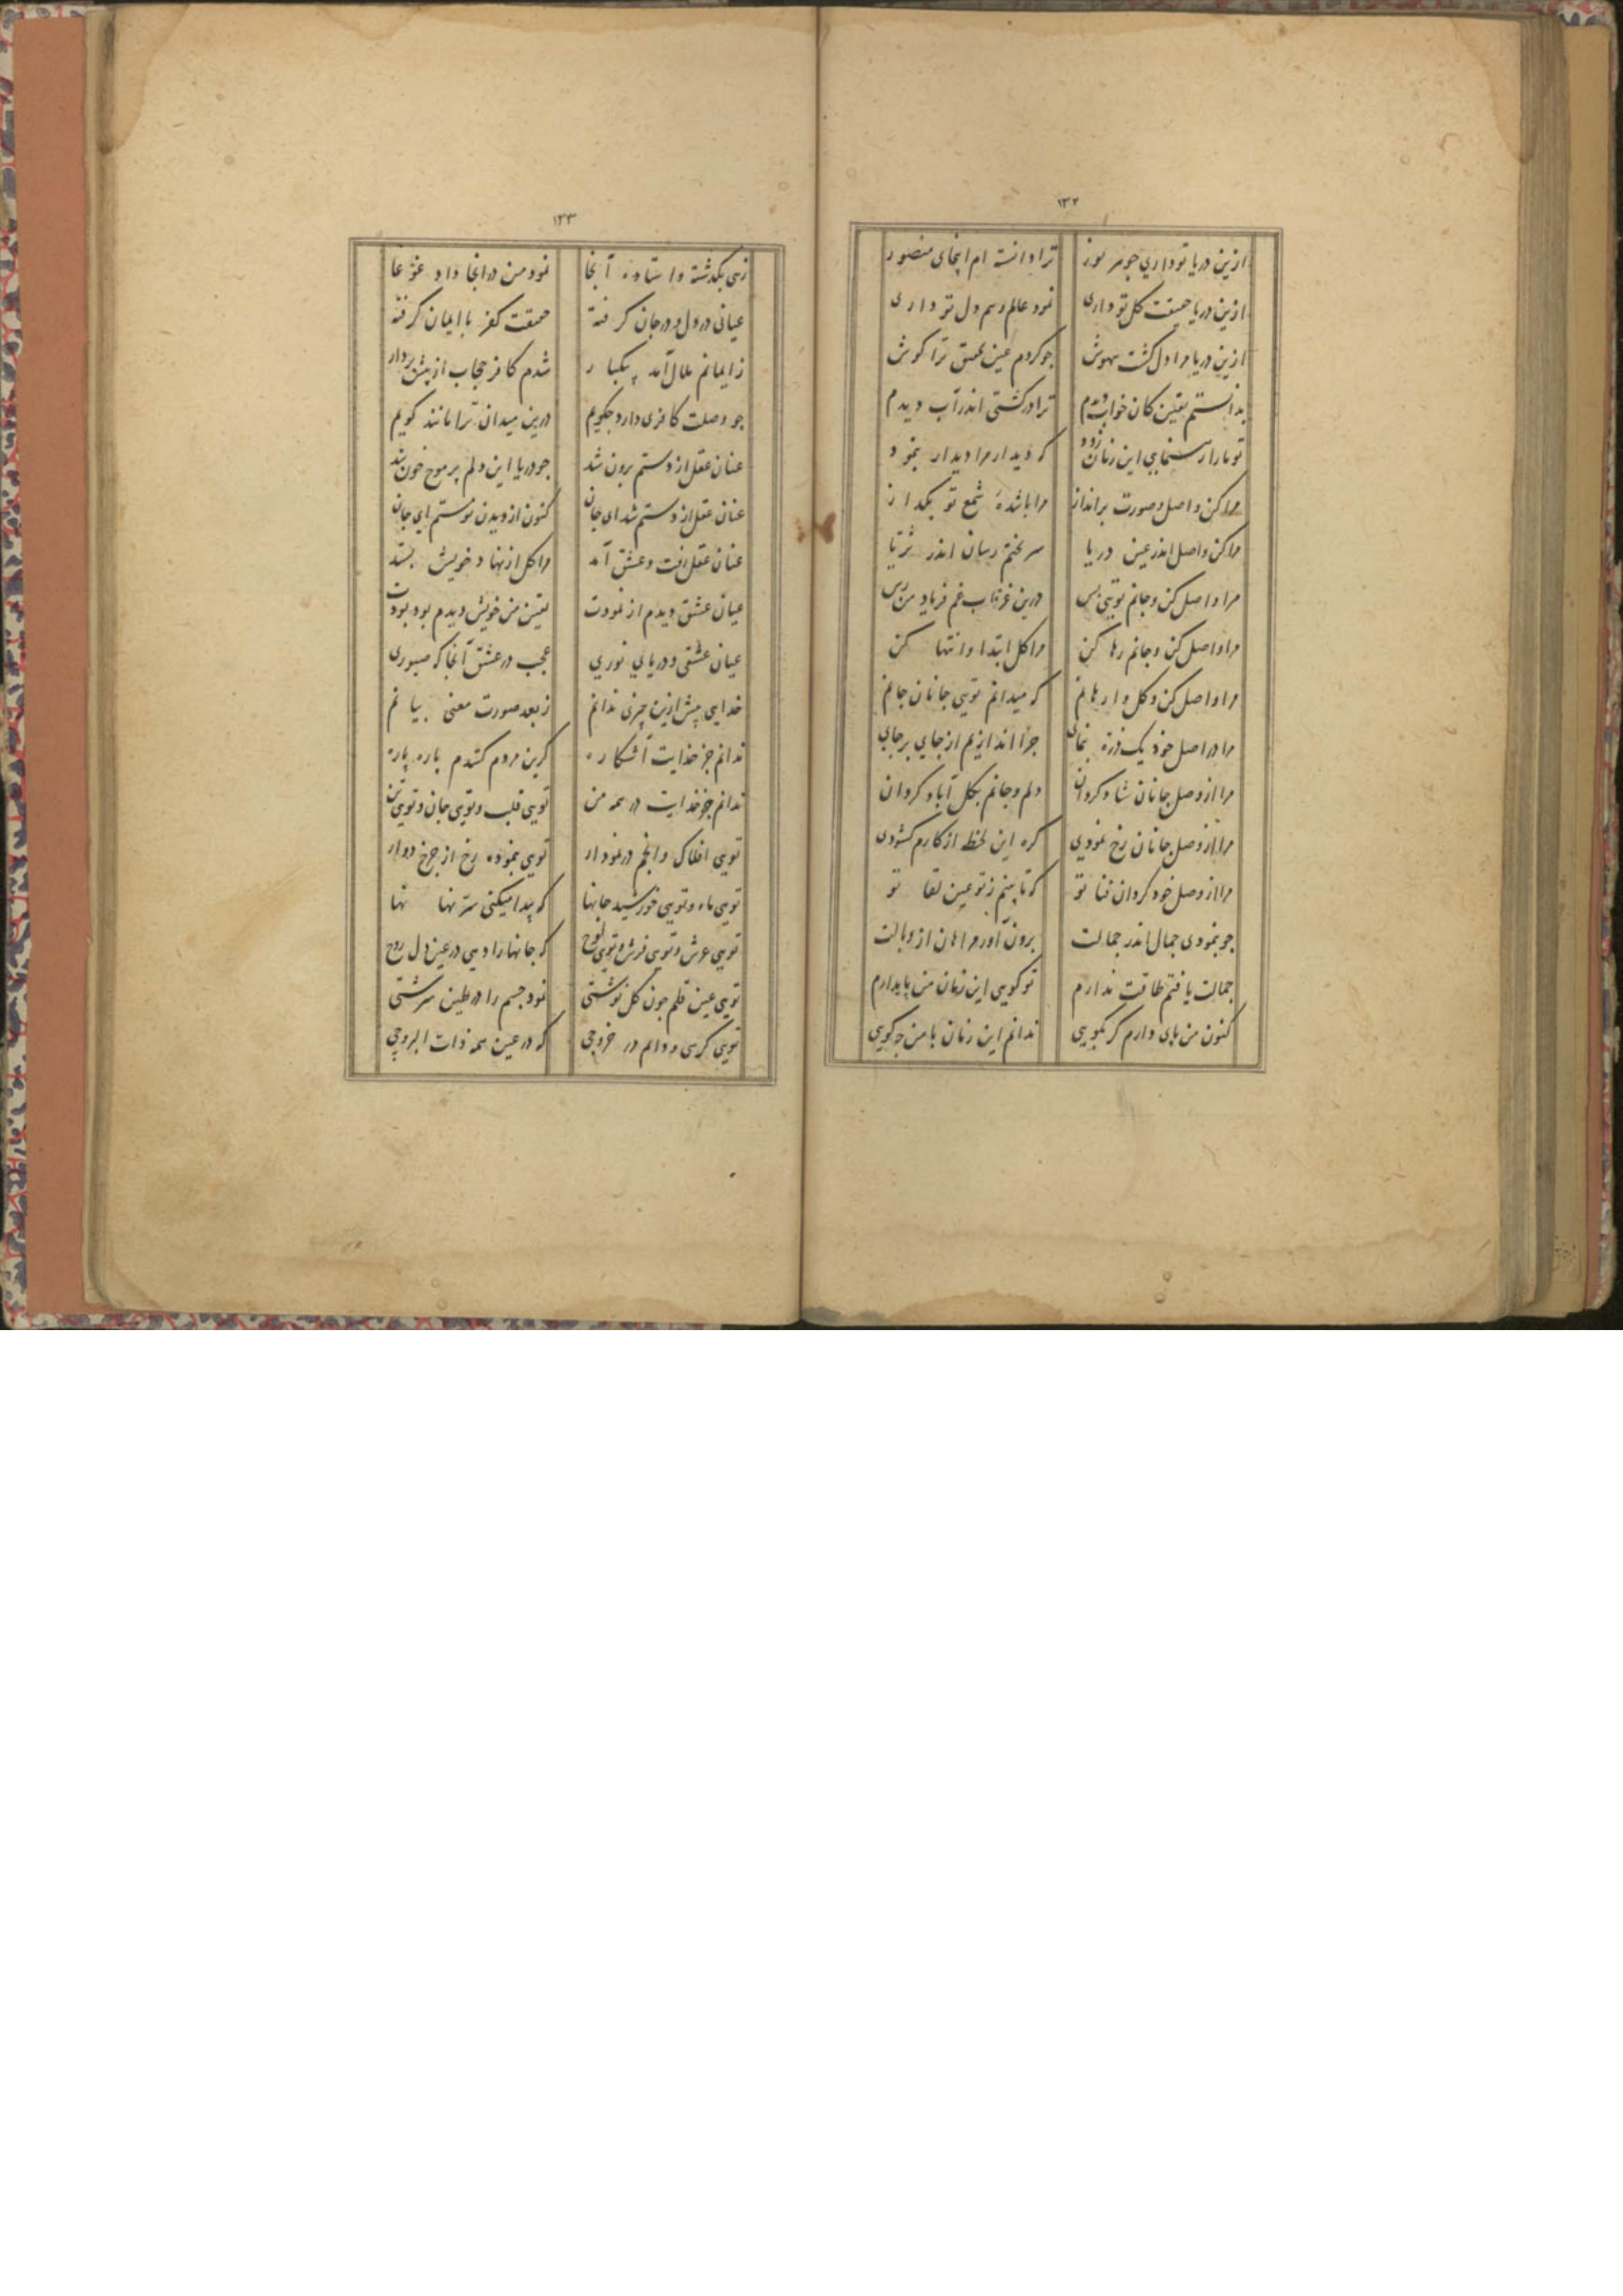 ۱۳۲
ازین دریا تو داری جوهر نور ترا دانسته ام اینجای منصور
ازین دریا حقیقت کل تو داری نمود عالم و هم دل تو داری
ازین دریا مرا دل گشت بیهوش جو کردم عین عشق ترا کوش
بدانستم یقین کان خواب دیدم ترا در کشتی اندر آب دیدم
تو ما را این زمان زود که دیدار مرا دیدار بنمود
مرا کن واصل و صورت برانداز مرا باشد شمع تو بکداز
مرا کن واصل اندر عین دریا سر بختم رسان اندر ثریا
مرا واصل کن و جانم تویی بس درین غرقاب غم فریاد من رس
مرا واصل کن و جانم رها کن مرا کل ابتدا و انتها کن
مرا واصل کن و کل وارهانم که میدانم تویی جانان جانم
مرا در اصل خود یک ذره بنمای جرا اندازیم از جای بر جای
مرا از وصل جانان شاد کردان دلم و جانم بکل آباد کردان
مرا از وصل جانان رخ نمودی کره این لحظه از کارم کشودی
مرا از وصل خود کردان فنا تو که تا بینم ز تو عین لقا تو
جو بنمودی جمال اندر جمالت برون آور مرا هان از وبالت
جمالت یافتم طاقت ندارم تو کویی این زمان من پایدارم
کنون من پای دارم کر بکویی ندانم این زمان با من جکویی
۱۳۳
زهی بکذشته و استاده آنجا نمود من در انجا داد غوغا
عیانی در دل و در جان کرفته حقیقت کفر با ایمان کرفته
ز ایمانم ملال آمد بیکبار شدم کافر حجاب از پیش بردار
جو وصلت کافری دارد جکویم درین میدان ترا مانند کویم
عنان عقل از دستم برون شد جو دریا این دلم پر موج خون شد
عنان عقل از دستم شد ای جان کنون از دیدن تو مستم ای جان
عنان عقل رفت و عشق آمد مرا کل از نهاد خویش بستد
عیان عشق دیدم از نمودت یقین من خویش دیدم بود بودت
عیان عشقی و دریای نوری عجب در عشق آنجا که صبوری
خدایی پیش ازین چیزی ندانم ز بعد صورت معنی بیانم
ندانم جز خدایت آشکاره کرین مردم کنندم پاره پاره
ندانم جز خدایت در همه من تویی قلب و تویی جان و تویی تن
تویی افلاک و انجم در نمودار تویی بنموده رخ از جرخ دوار
تویی ماه و تویی خورشید جانها که پیدا میکنی سر نهانها
تویی عرش و تویی فرش و تویی لوح که جانها را دهی در عین دل روح
تویی عین قلم جون کل نوشتی نمود جسم را در طین سرشتی
تویی کرسی و دایم در خروجی که در عین همه ذات البروجی